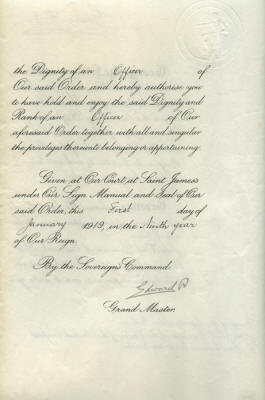 the Dignity of an Officer of
Our said Order and hereby authorise you
to have hold and enjoy the said Dignity and
Rank of an Officer of Our
aforesaid Order together with all and singular
the privileges thereunto belonging or appertaining.
Given at Our Court at Saint James's
under Our Sign Manual and Seal of Our
said Order, this First day of
January 1919, in the Ninth year
of Our Reign.
By the Sovereign's Command.
Edward P
Grand Master.